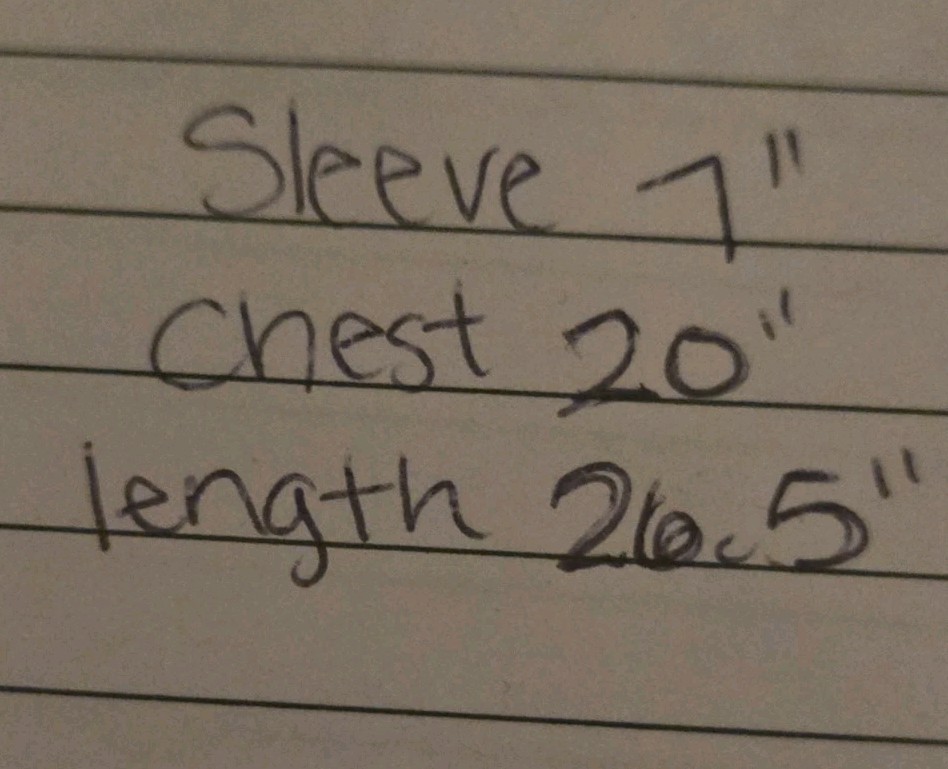 Sleeve 7"
Chest 20"
length 26.5"